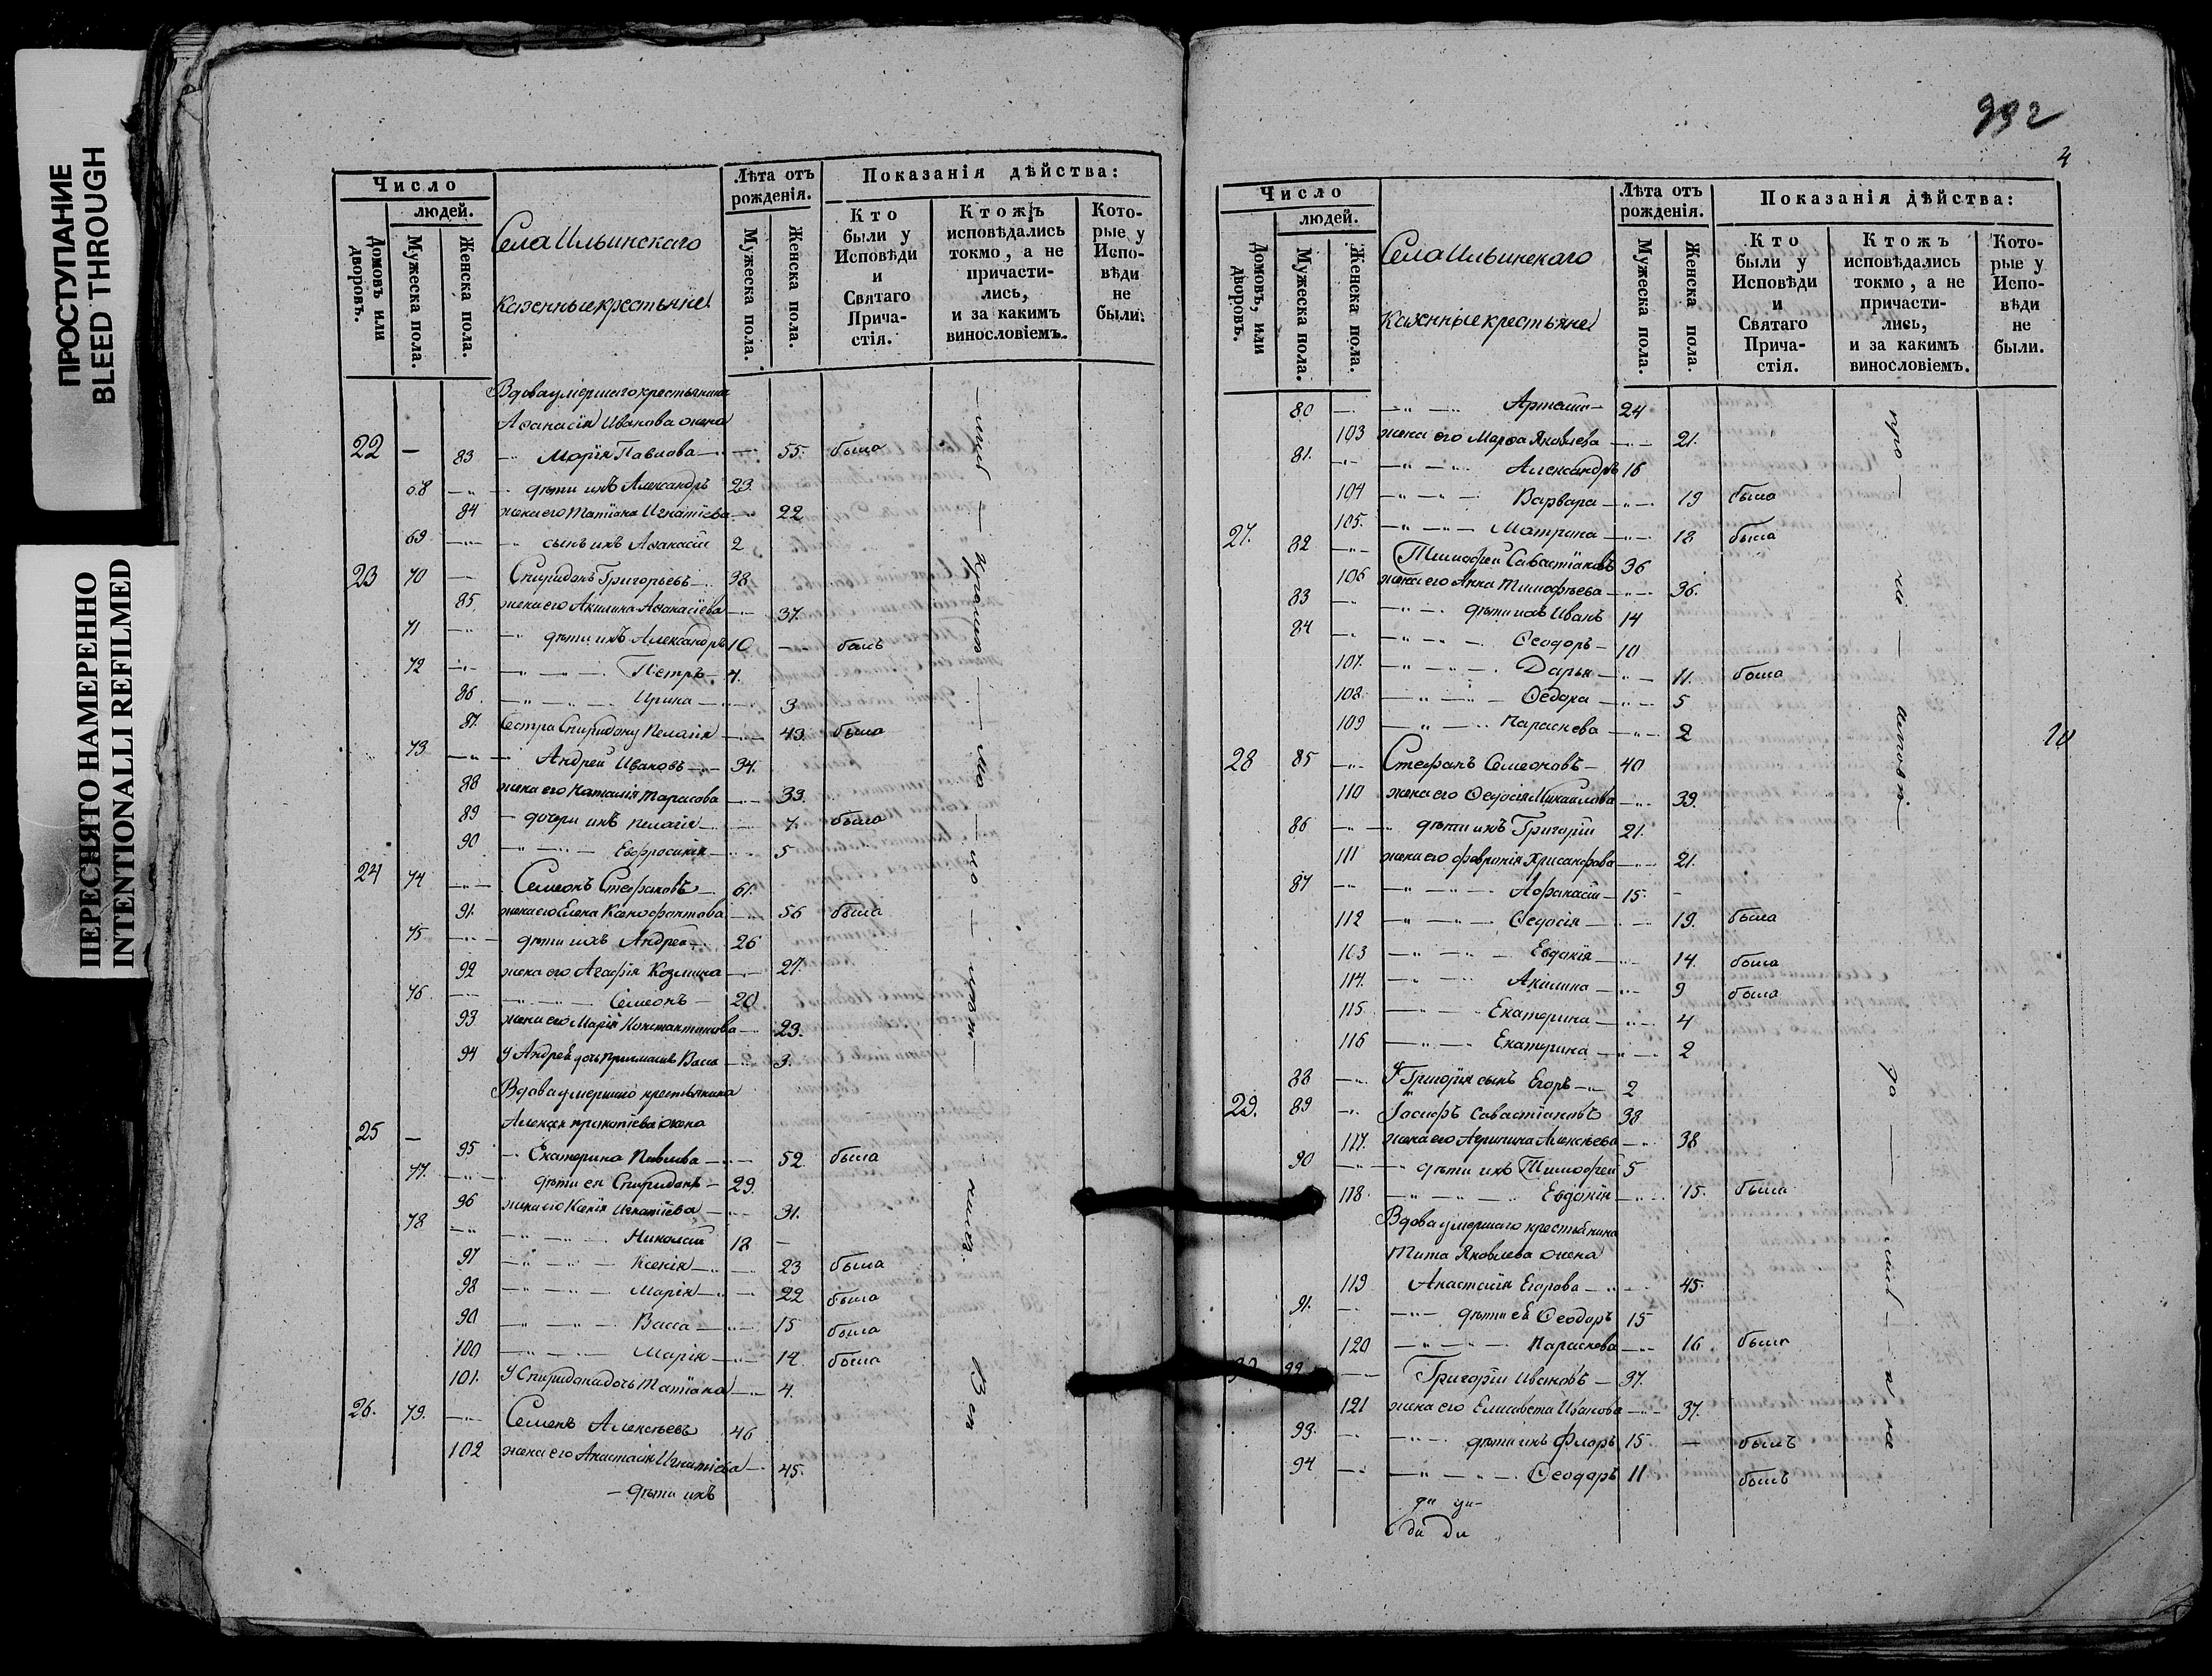 ПРОСТУПАНИЕ
BLEED THROUGH
ПЕРЕСНЯТО НАМЕРЕННО
INTENTIONALLI REFILMED
Число
людей.
Домовъ или дворовъ.
Мужеска пола.
Женска пола.
Села Ильинскаго
Казенные крестьяне
Лѣта отъ рожденія.
Мужеска пола.
Женска пола.
Показанія дѣйства:
Кто были у Исповѣди и Святаго Прича-стія.
Ктожъ исповѣдались токмо, а не причасти-лись, и за какимъ винословіемъ.
Кото-рые у Испо-вѣди не были.
Вдова умершаго крестьянина
Аѳанасія Иванова жена
22 — 83 Марія Павлова 55. была
68 дѣти ихъ Александръ 23.
84 жена его Татіана Игнатіева 22
69 сынъ ихъ Аѳанасій 2
23 70 Спиридонъ Григорьевъ 38
85. жена его Акилина Аѳанасіева 37.
71 дѣти ихъ Александръ 10 — былъ
72 Петръ 4.
86. Ирина 3
87. Сестра Спиридону Пелагія 43. была
73 Андрей Ивановъ 34.
88 жена его Наталія Тарасова 33.
89 дочери ихъ Пелагія 7. была
90 Евфросинія 5
24 74 Семеонъ Стефановъ 61.
91. жена его Елена Ксенофонтова 56 была
75 дѣти ихъ Андрей 26
92 жена его Агафія Козмина 27.
76 Семеонъ 20
93 жена его Марія Константинова 23.
94 У Андрея дочь Васса 3.
Вдова умершаго крестьянина
жена
25 — 95 Екатерина Павлова 52. была
77. дѣти ея Спиридонъ 29.
96 жена его Ксенія Игнатіева 31.
78 Николай 18 —
97 Ксенія 23 была
98 Марія 22 была
90 Васса 15 была
100 Марія 14 была
101. У Спиридона дочь Татіана 4.
26. 79. Семенъ Алексѣевъ 46
102 жена его Анастасія Игнатіева 45.
дѣти ихъ
4
Число
людей.
Домовъ, или дворовъ.
Мужеска пола.
Женска пола.
Села Ильинскаго
Казенные крестьяне
Лѣта отъ рожденія.
Мужеска пола.
Женска пола.
Показанія дѣйства:
Кто были у Исповѣди и Святаго Прича-стія.
Ктожъ исповѣдались токмо, а не причасти-лись, и за какимъ винословіемъ.
Кото-рые у Испо-вѣди не были.
80 24
103 жена его Марѳа Яковлева 21.
81. Александръ 16
104 Варвара 19 была
105. Матрона 18 была
27. 82 Тимофей Савастіановъ 36
106 жена его Анна Тимофѣева 36.
83 дѣти ихъ Иванъ 14
84 Ѳеодоръ 10
107. Дарья 11. была
108 Ѳедора 5
109 Параскева 2
28 85 Стефанъ Семеоновъ 40
110 жена его Ѳедосія Михаилова 39.
86 дѣти ихъ Григорій 21.
111 жена его Февронія Хрисанфова 21.
87 Афанасій 15.
112 Ѳедосія 19. была
113 Евдокія 14. была
114. Акилина 9 была
115 Екатерина 4
116 Екатерина 2
88 У Григорія сынъ Егоръ 2
29. 89 Іосифъ Савастіановъ 38
117. жена его Агрипина Алексѣева 38
90 дѣти ихъ Тимофей 5
118. Евдокія 15. была
Вдова умершаго крестьянина
Тита Яковлева жена
119 Анастасія Егорова 45.
91. дѣти ея Ѳеодоръ 15
120 Параскева 16. была
Григорій Ивановъ 37.
121 жена его Елисавета Иванова 37.
93. дѣти ихъ Флоръ 15 — былъ
94 Ѳеодоръ 11 былъ